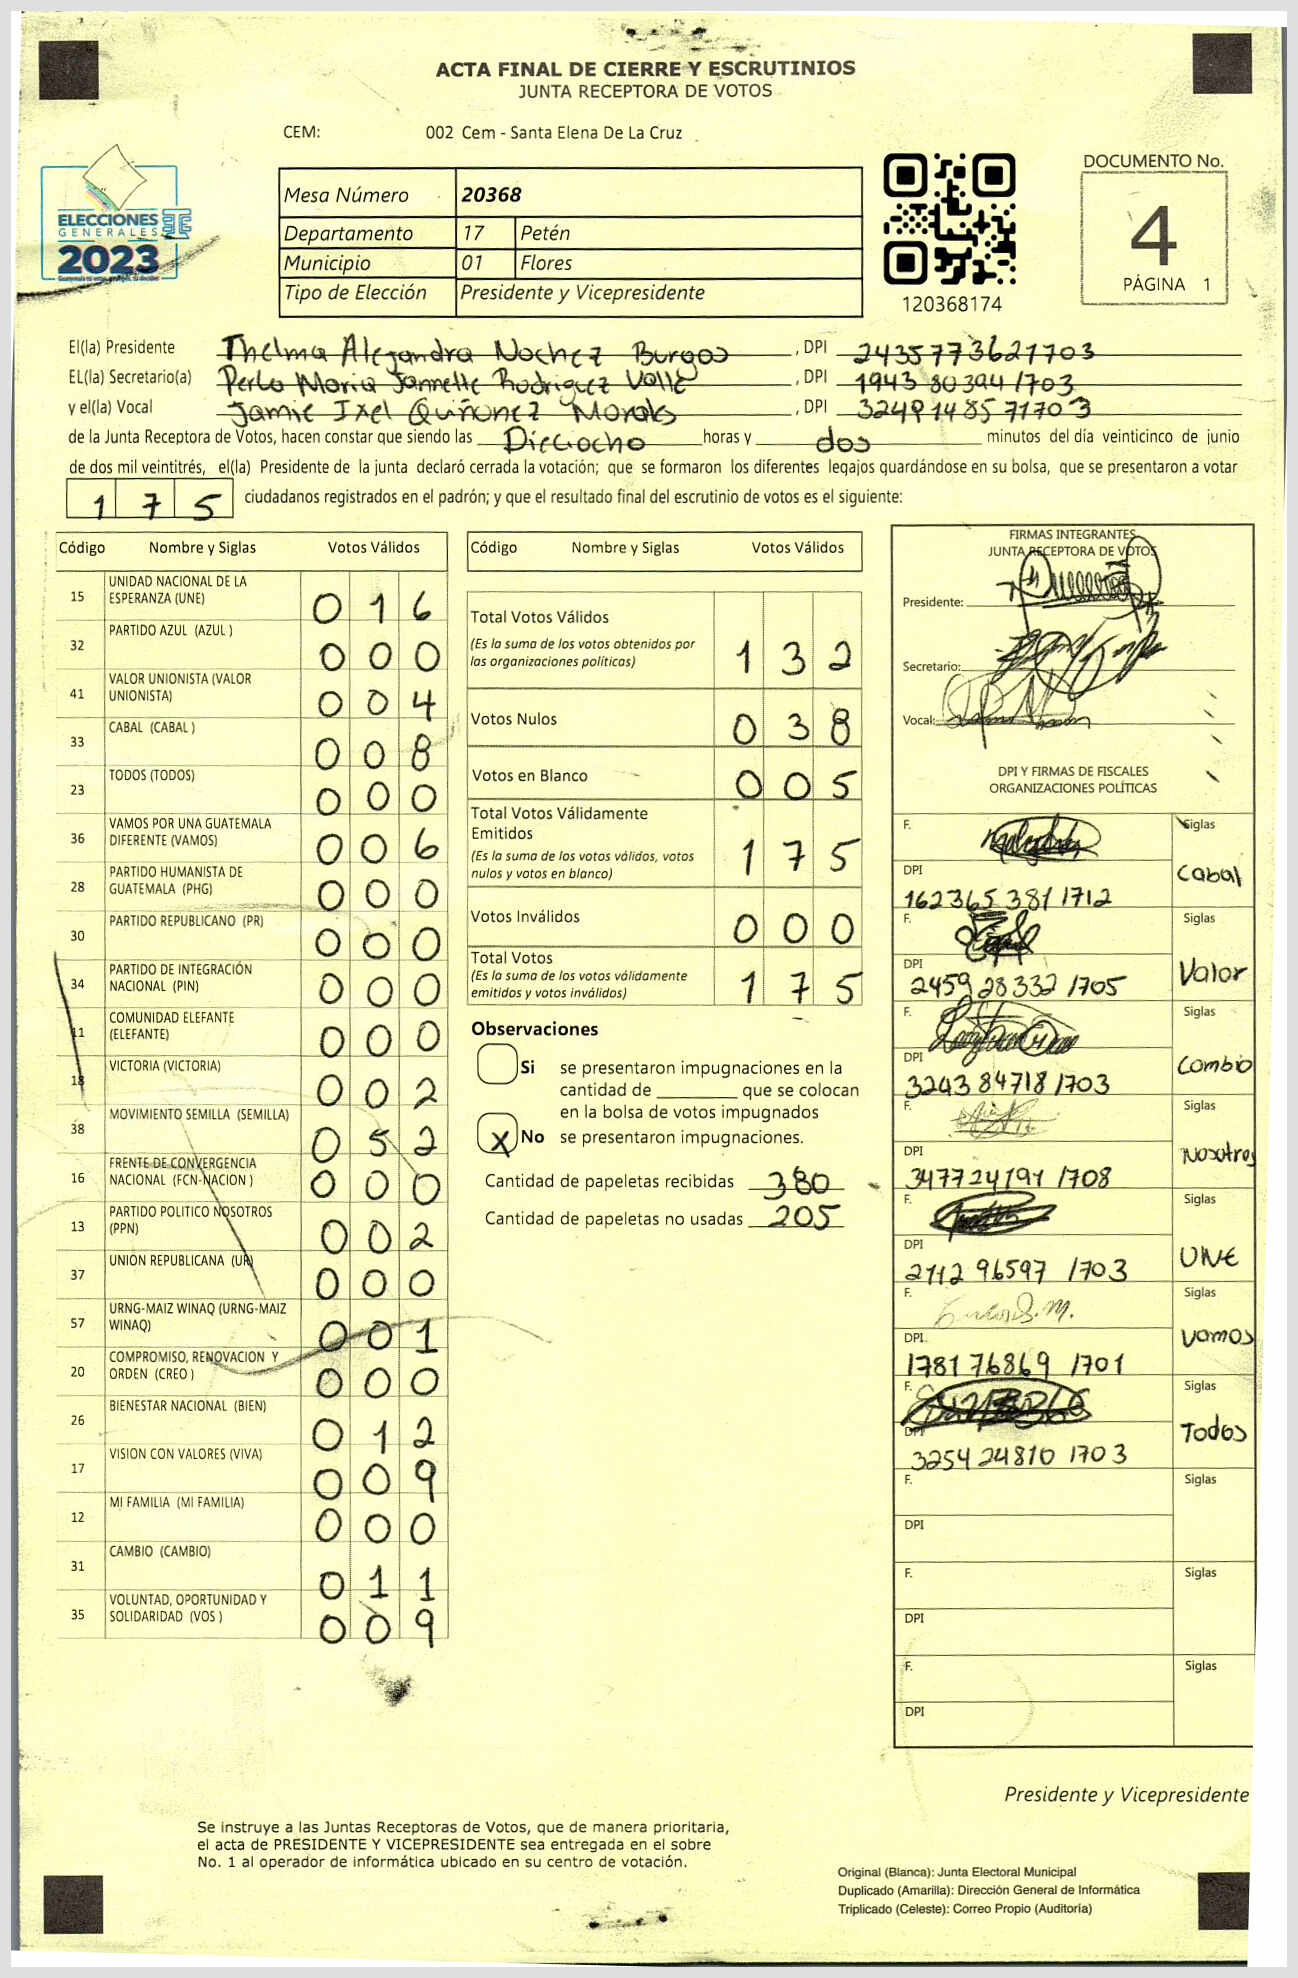 ACTA FINAL DE CIERRE Y ESCRUTINIOS
JUNTA RECEPTORA DE VOTOS
CEM: 002 Cem - Santa Elena De La Cruz
ELECCIONES
GENERALES
2023
Mesa Número 20368
Departamento 17 Petén
Municipio 01 Flores
Tipo de Elección Presidente y Vicepresidente
120368174
DOCUMENTO No.
4
PÁGINA 1
El(la) Presidente Thelma Alejandra Nochez Burgos, DPI 2435773621703
EL(la) Secretario(a) Perla Maria Jannette Rodriguez Valle, DPI 1943 80394 1703
y el(la) Vocal Jamie Ixel Quiñonez Morales, DPI 3249148571703
de la Junta Receptora de Votos, hacen constar que siendo las Dieciocho horas y dos minutos del día veinticinco de junio
de dos mil veintitrés, el(la) Presidente de la junta declaró cerrada la votación; que se formaron los diferentes legajos guardándose en su bolsa, que se presentaron a votar
175 ciudadanos registrados en el padrón; y que el resultado final del escrutinio de votos es el siguiente:
Código Nombre y Siglas Votos Válidos
15 UNIDAD NACIONAL DE LA ESPERANZA (UNE) 016
32 PARTIDO AZUL (AZUL ) 000
41 VALOR UNIONISTA (VALOR UNIONISTA) 004
33 CABAL (CABAL ) 008
23 TODOS (TODOS) 000
36 VAMOS POR UNA GUATEMALA DIFERENTE (VAMOS) 006
28 PARTIDO HUMANISTA DE GUATEMALA (PHG) 000
30 PARTIDO REPUBLICANO (PR) 000
34 PARTIDO DE INTEGRACIÓN NACIONAL (PIN) 000
11 COMUNIDAD ELEFANTE (ELEFANTE) 000
18 VICTORIA (VICTORIA) 002
38 MOVIMIENTO SEMILLA (SEMILLA) 052
16 FRENTE DE CONVERGENCIA NACIONAL (FCN-NACION ) 000
13 PARTIDO POLITICO NOSOTROS (PPN) 002
37 UNION REPUBLICANA (UR) 000
57 URNG-MAIZ WINAQ (URNG-MAIZ WINAQ) 001
20 COMPROMISO, RENOVACION Y ORDEN (CREO ) 000
26 BIENESTAR NACIONAL (BIEN) 012
17 VISION CON VALORES (VIVA) 009
12 MI FAMILIA (MI FAMILIA) 000
31 CAMBIO (CAMBIO) 011
35 VOLUNTAD, OPORTUNIDAD Y SOLIDARIDAD (VOS ) 009
Código Nombre y Siglas Votos Válidos
Total Votos Válidos
(Es la suma de los votos obtenidos por
las organizaciones políticas) 132
Votos Nulos 038
Votos en Blanco 005
Total Votos Válidamente
Emitidos
(Es la suma de los votos válidos, votos
nulos y votos en blanco) 175
Votos Inválidos 000
Total Votos
(Es la suma de los votos válidamente
emitidos y votos inválidos) 175
Observaciones
Si se presentaron impugnaciones en la
cantidad de ________ que se colocan
en la bolsa de votos impugnados
X No se presentaron impugnaciones.
Cantidad de papeletas recibidas 380
Cantidad de papeletas no usadas 205
FIRMAS INTEGRANTES
JUNTA RECEPTORA DE VOTOS
Presidente:
Secretario:
Vocal:
DPI Y FIRMAS DE FISCALES
ORGANIZACIONES POLÍTICAS
F. Siglas
DPI Cabal
162365 381 1712
F. Siglas
DPI Valor
2459 28332 1705
F. Siglas
DPI Cambio
3243 84718 1703
F. Siglas
DPI Nosotros
3477 24191 1708
F. Siglas
DPI UNE
2112 96597 1703
F. Siglas
DPI Vamos
1781 76869 1701
F. Siglas
DPI Todos
3254 24810 1703
F. Siglas
DPI
F. Siglas
DPI
F. Siglas
DPI
Presidente y Vicepresidente
Se instruye a las Juntas Receptoras de Votos, que de manera prioritaria,
el acta de PRESIDENTE Y VICEPRESIDENTE sea entregada en el sobre
No. 1 al operador de informática ubicado en su centro de votación.
Original (Blanca): Junta Electoral Municipal
Duplicado (Amarilla): Dirección General de Informática
Triplicado (Celeste): Correo Propio (Auditoría)